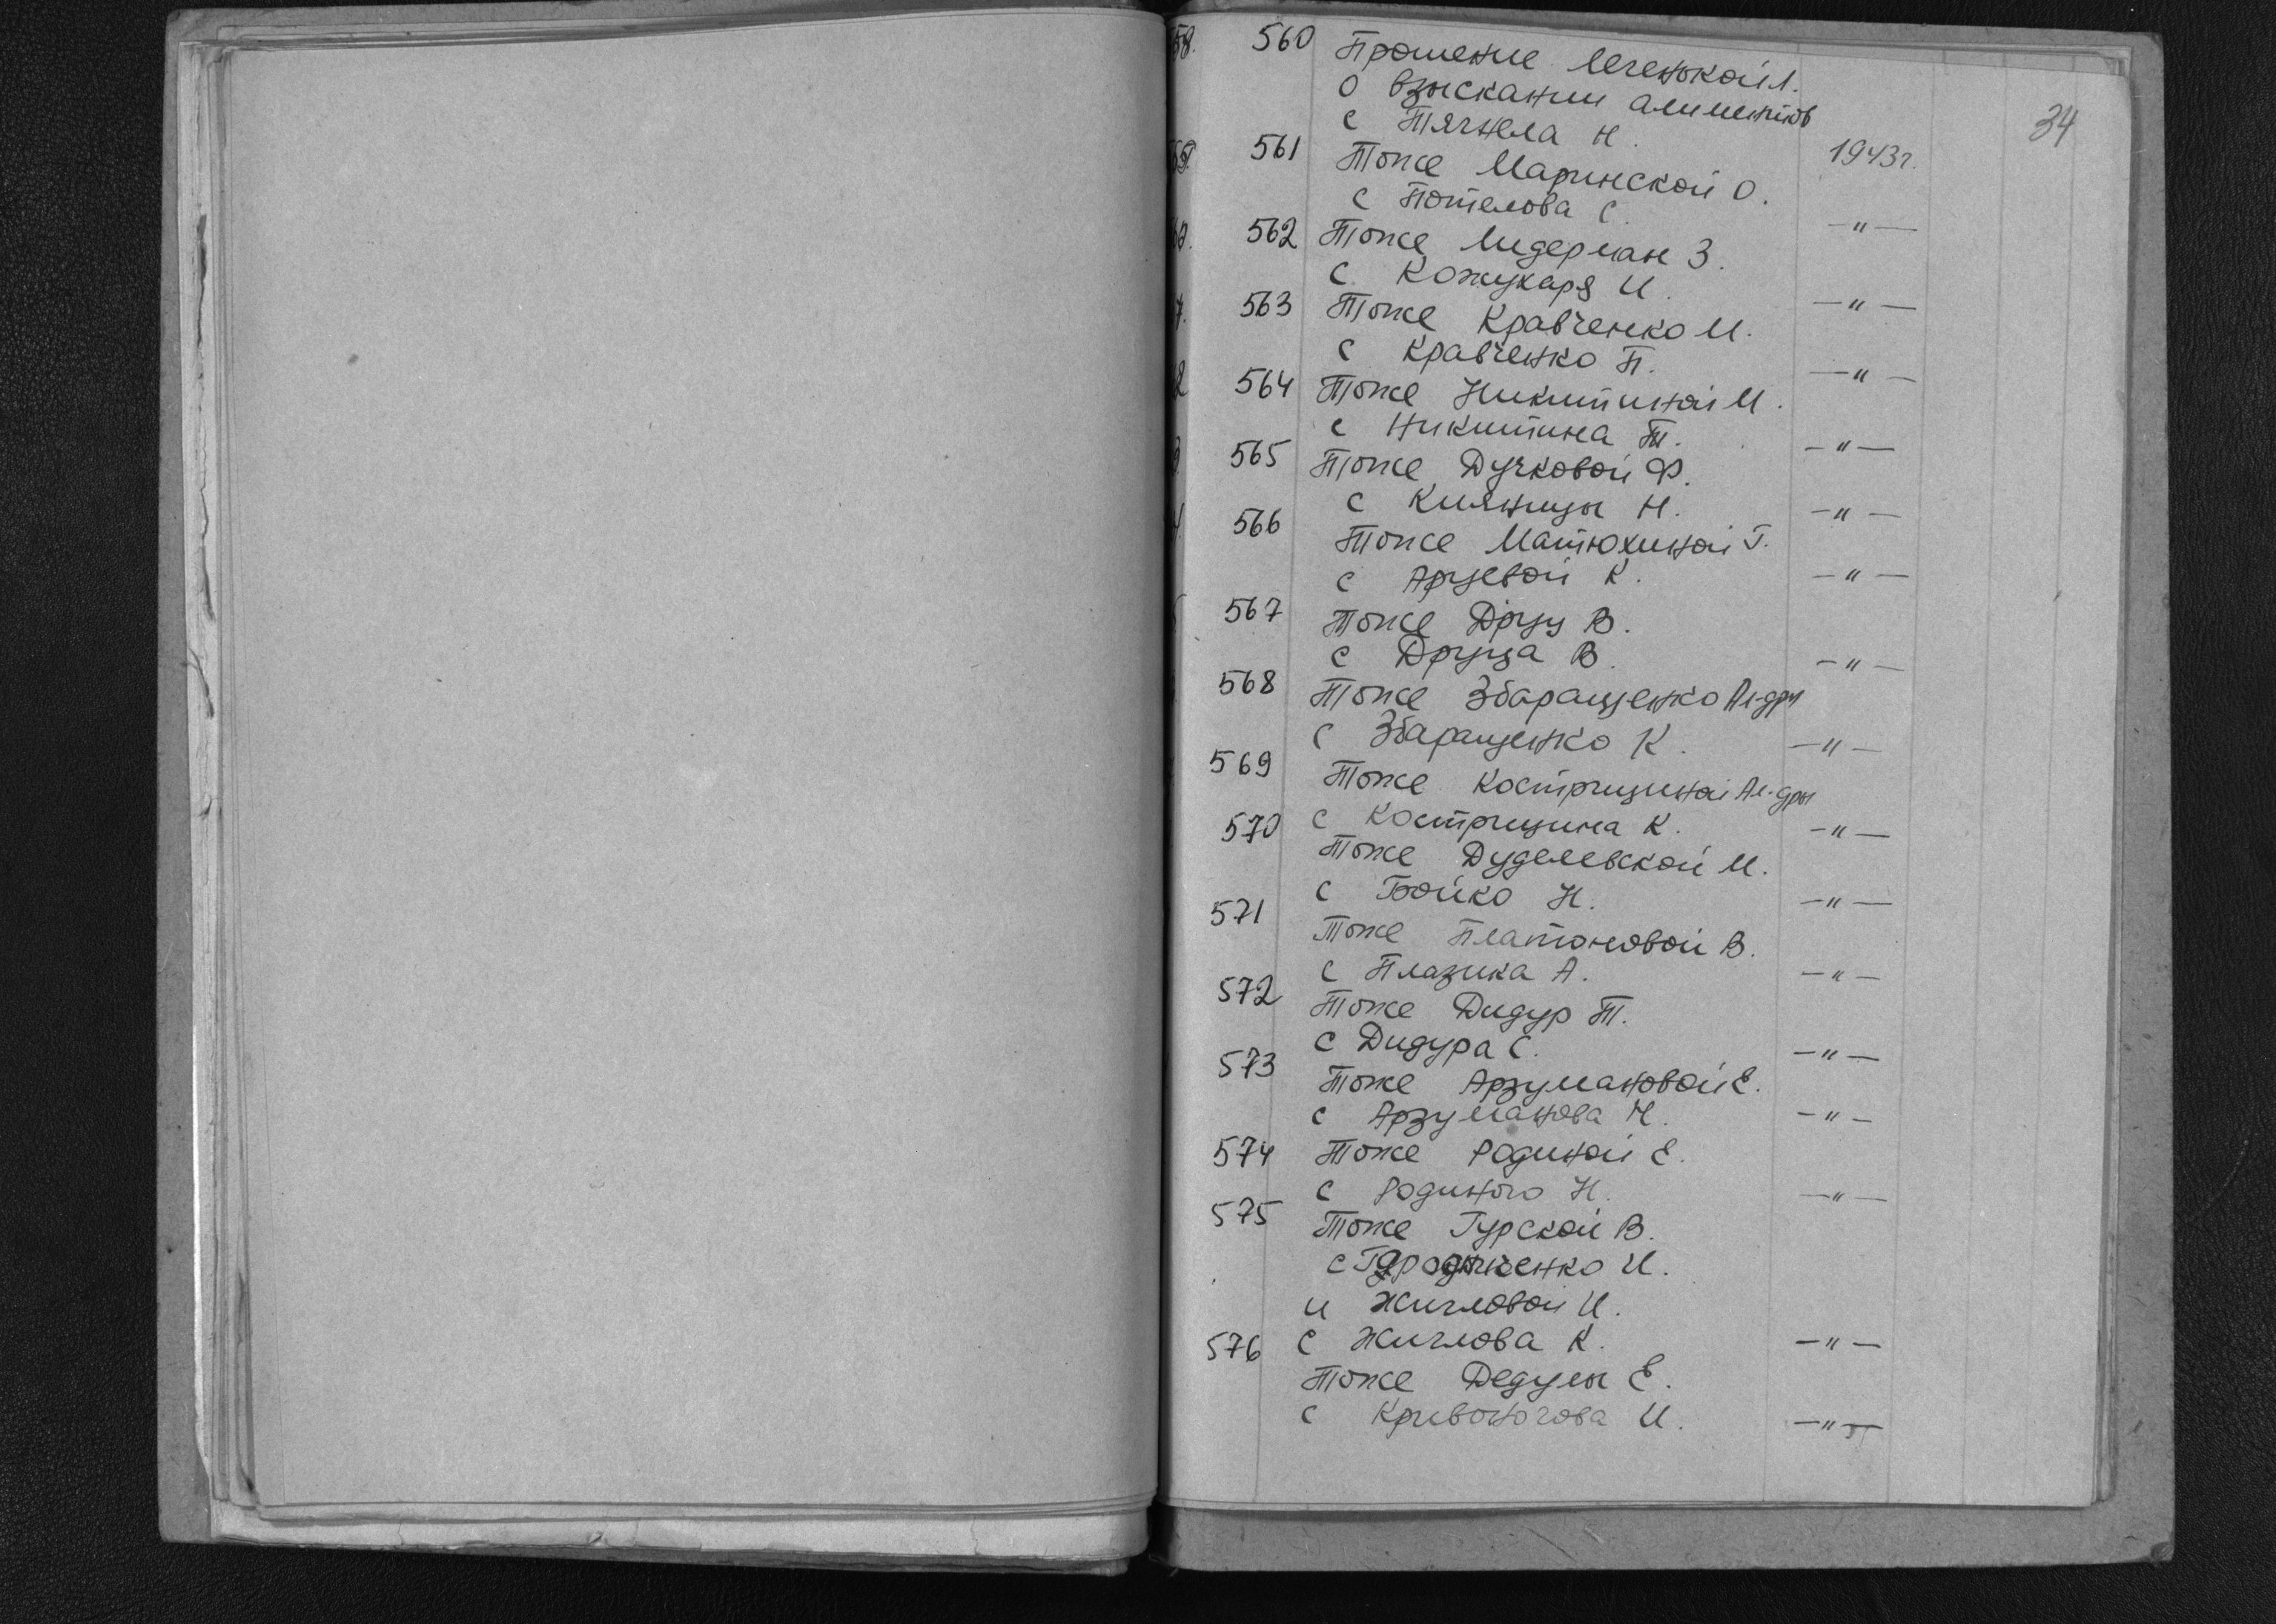 34
560 Прошение Легенькой Л.
о взыскании алиментов
с Тягнела Н. 1943г.
561 Тоже Маринской О.
с Потелова С. —"—
562 Тоже Лидерман З.
с Кожукаря И. —"—
563 Тоже Кравченко М.
с Кравченко П. —"—
564 Тоже Никитиной М.
с Никитина Т. —"—
565 Тоже Дучковой Ф.
с Кияницы Н. —"—
566 Тоже Матюхиной Г.
с Арцевой К. —"—
567 Тоже Друц В.
с Друца В. —"—
568 Тоже Збаращенко Ал-дры
с Збаращенко К. —"—
569 Тоже Кострициной Ал-дры
с Кострицина К. —"—
570 Тоже Дуделевской М.
с Бойко Н. —"—
571 Тоже Платоновой В.
с Плазика А. —"—
572 Тоже Дидур Т.
с Дидура С. —"—
573 Тоже Арзумановой Е.
с Арзуманова Н. —"—
574 Тоже Родиной Е.
с Родиного Н. —"—
575 Тоже Гурской В.
с И.
и Жигловой И.
с Жиглова К. —"—
576 Тоже Дедулы Е.
с Кривоногова И. —"—